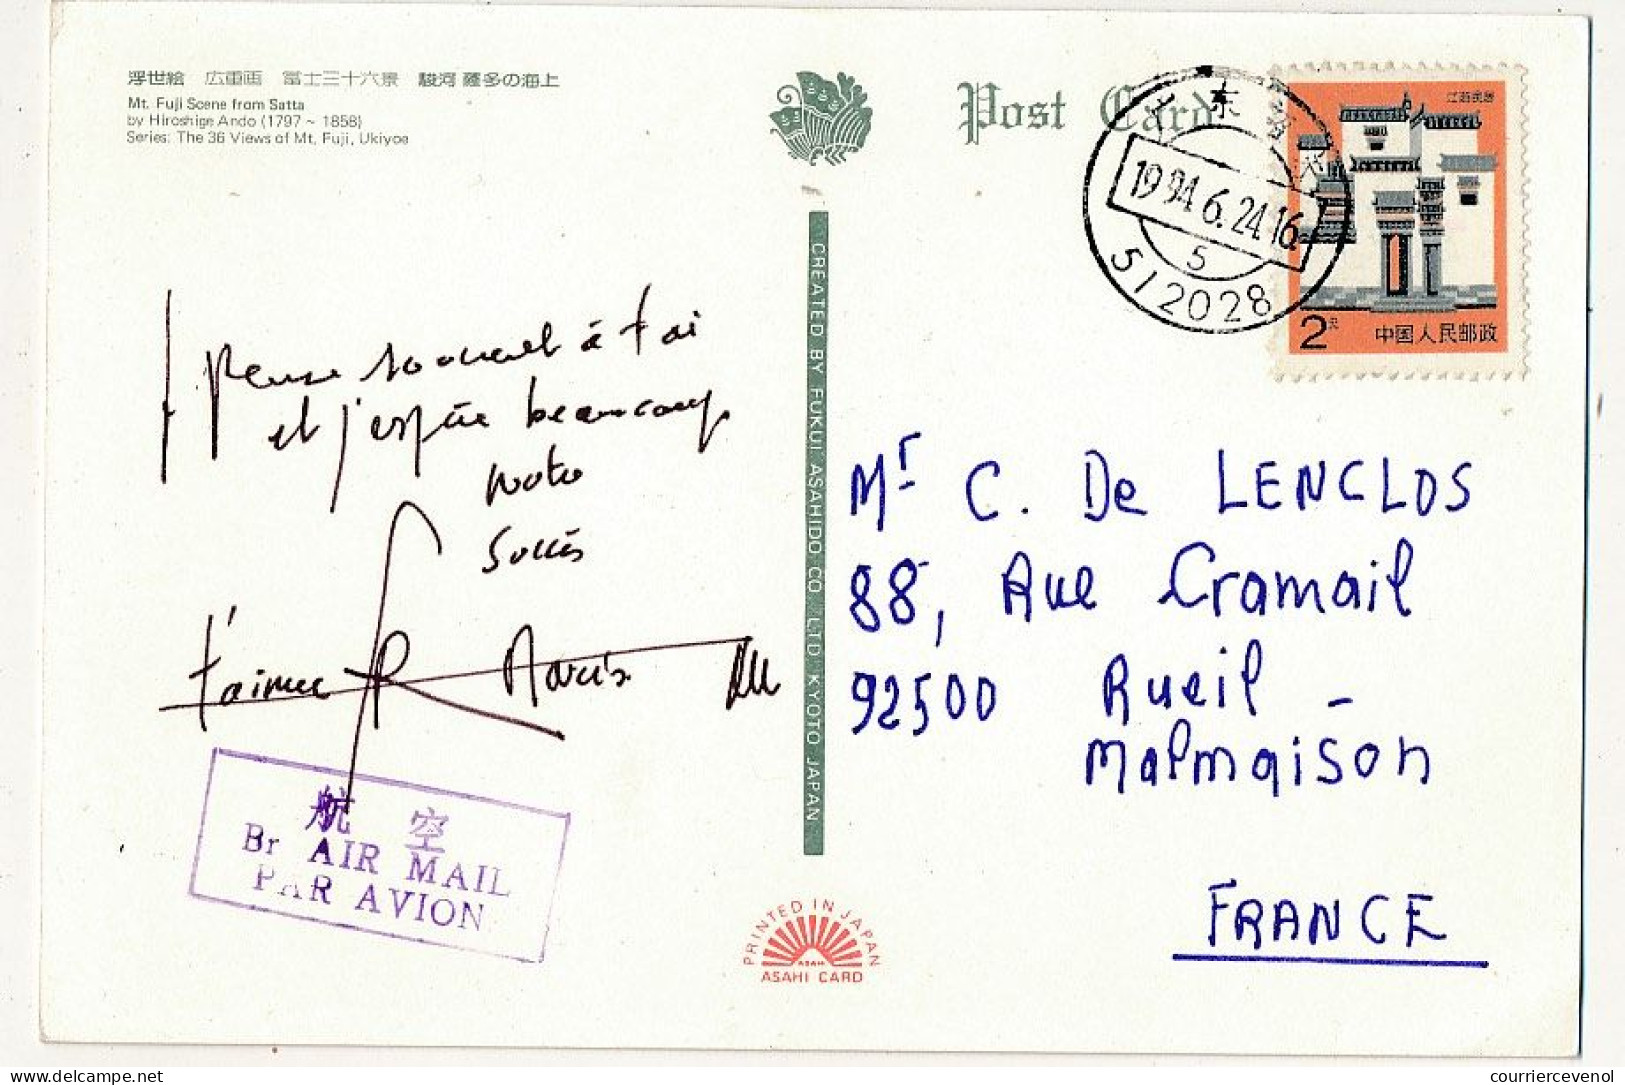 浮世絵 広重画 冨士三十六景 駿河薩多の海上
Mt. Fuji Scene from Satta
by Hiroshige Ando (1797 ~ 1858)
Series: The 36 Views of Mt. Fuji, Ukiyoe
Post Card
1994.6.24.16
5
512028
江西民居
2元
中国人民邮政
pense souvent à toi
et j'espère beaucoup
notre
succès
t'aime
CREATED BY FUKUI ASAHIDO CO. LTD. KYOTO JAPAN
Mr C. De LENCLOS
88, Rue Cramail
92500 Rueil -
Malmaison
FRANCE
航 空
By AIR MAIL
PAR AVION
PRINTED IN JAPAN
ASAHI
ASAHI CARD
Delcampe.net
courriercevenol